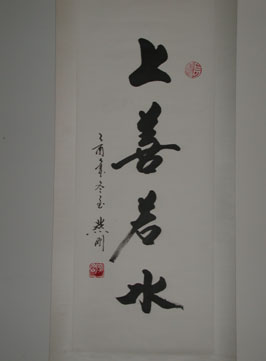 上善若水
乙酉年冬至